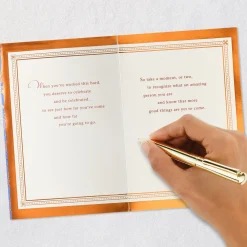 When you've worked this hard,
you deserve to celebrate
and be celebrated,
to see just how far you've come
and how far
you're going to go.
So take a moment, or two,
to recognize what an amazing
person you are
and know that more
good things are yet to come.